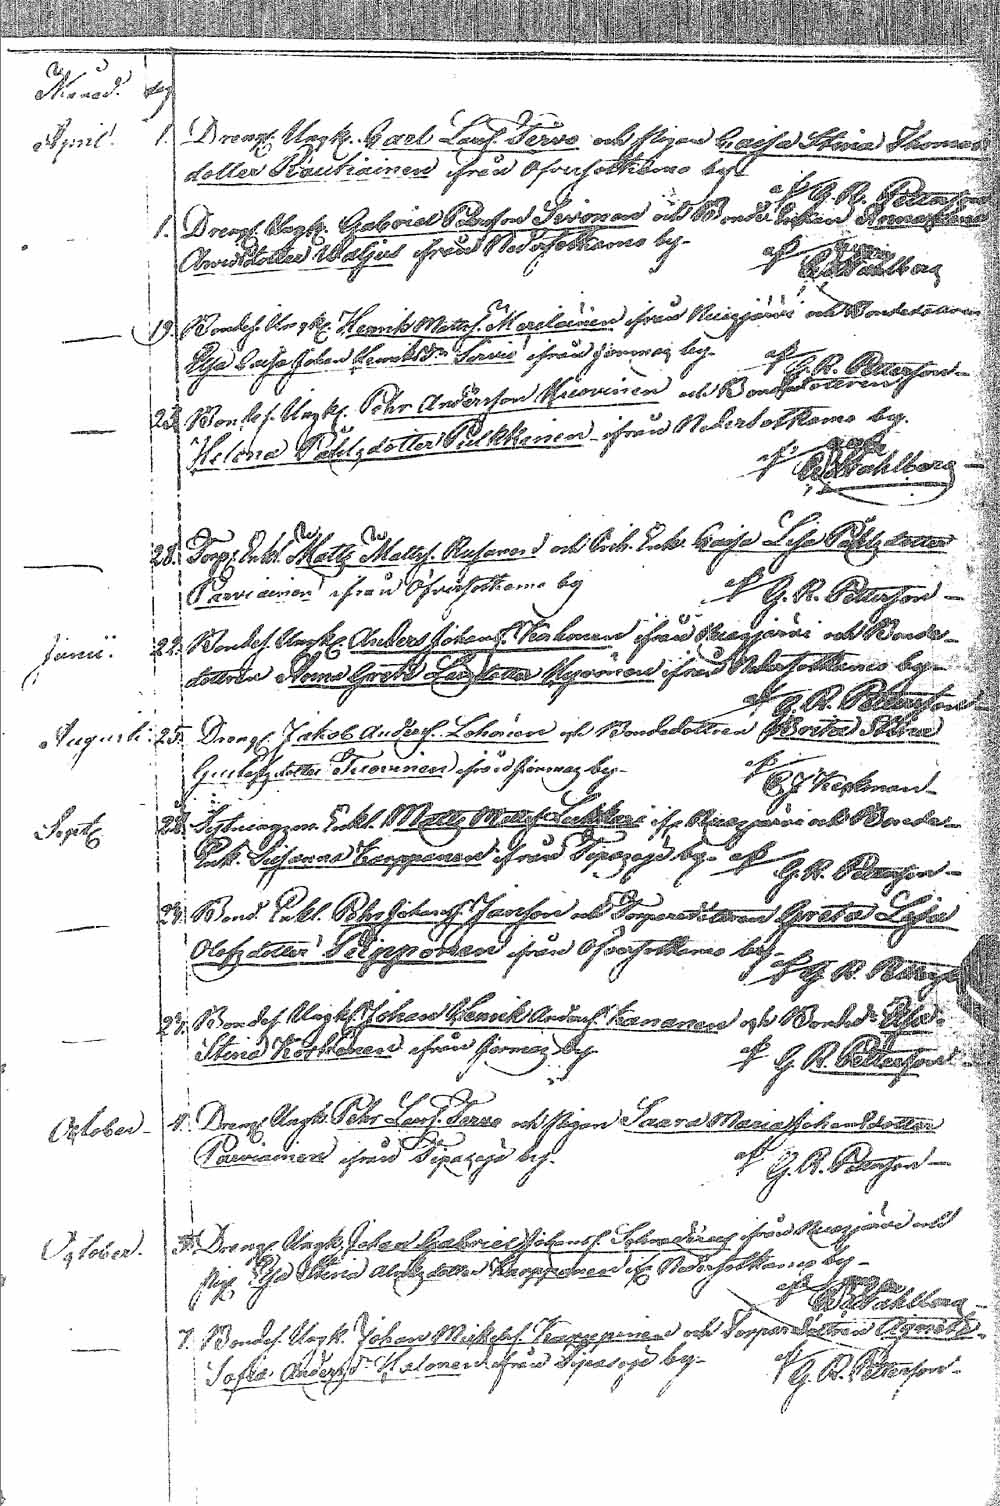 Månad. dag
April. 1. Dreng. Ungk. Carl Larss. Tervo och Pigan Caisa Stina Thomas
dotter Rautiainen ifrån Öfversotkamo by.
af G. R. Petterson
1. Dreng. Ungk. Gabriel Petersson Sirviman och Bonde Enkan
dotter Waljus ifrån Nedersotkamo by.
af Wahlberg
19. Bondes. Ungk. Henrik Matts. Meriläinen ifrån Ruezjärvi och Bondedottren
Elsa Caisa Johan Henriksdr. Servio ifrån Jormaz by.
af G. R. Petterson
23. Bondes. Ungk. Pehr Andersson Kuovinen och Bondedotteren
Helena Påhlsdotter Pulkkinen ifrån Nedersotkamo by.
af Wahlberg
28. Torp. Enkl. Matts Matts. Rusanen och Enk. Caisa Lisa Påhlsdotter
Parviainen ifrån Öfversotkamo by
af G. R. Petterson
Junii. 22. Bondes. Ungk. Anders Johans. Karhunen ifrån Ruezjärvi och Bonde-
dottren Anna Greta Larsdotter Kyrönen ifrån Nedersotkamo by.
af G. R. Petterson
Augusti. 25. Dreng. Jakob Anders. Lohinen och Bondedottren Brita Stina
Gustafsdotter Tuovinen ifrån Jormaz by.
af Keckman
Septr. 22. Enkl. Matts Matts. ifr. Ruezjärvi och Bonde
Enk. Susanna Karppanen ifrån Tipazoja by. af G. R. Petterson
29. Bond. Enkl. Pehr Johans. Jansson och Torparedotteren Greta Lisa
Olofsdotter Seppänen ifrån Öfversotkamo by.
af G. R. Petterson
29. Bondes. Ungk. Johan Henrik Anders. Kananen och Bonded. Elsa
Stina Korhonen ifrån Jormaz by.
af G. R. Petterson
October. Dreng. Ungk. Pehr Larss. Tervo och Pigan Saara Maria Johansdotter
Parviainen ifrån Tipazoja by.
af G. R. Petterson
October. Dreng. Ungk. Johan Gabriel Johanss. Schroderus ifrån Ruezjärvi och
Pig. Elsa Stina dotter Karppanen ifr. Nedersotkamo by.
af Wahlberg
7. Bondes. Ungk. Johan Mickels. Karppinen och Torpardottren Agneta
Sofia Andersdr. Halonen ifrån Tipasoja by.
af G. R. Petterson